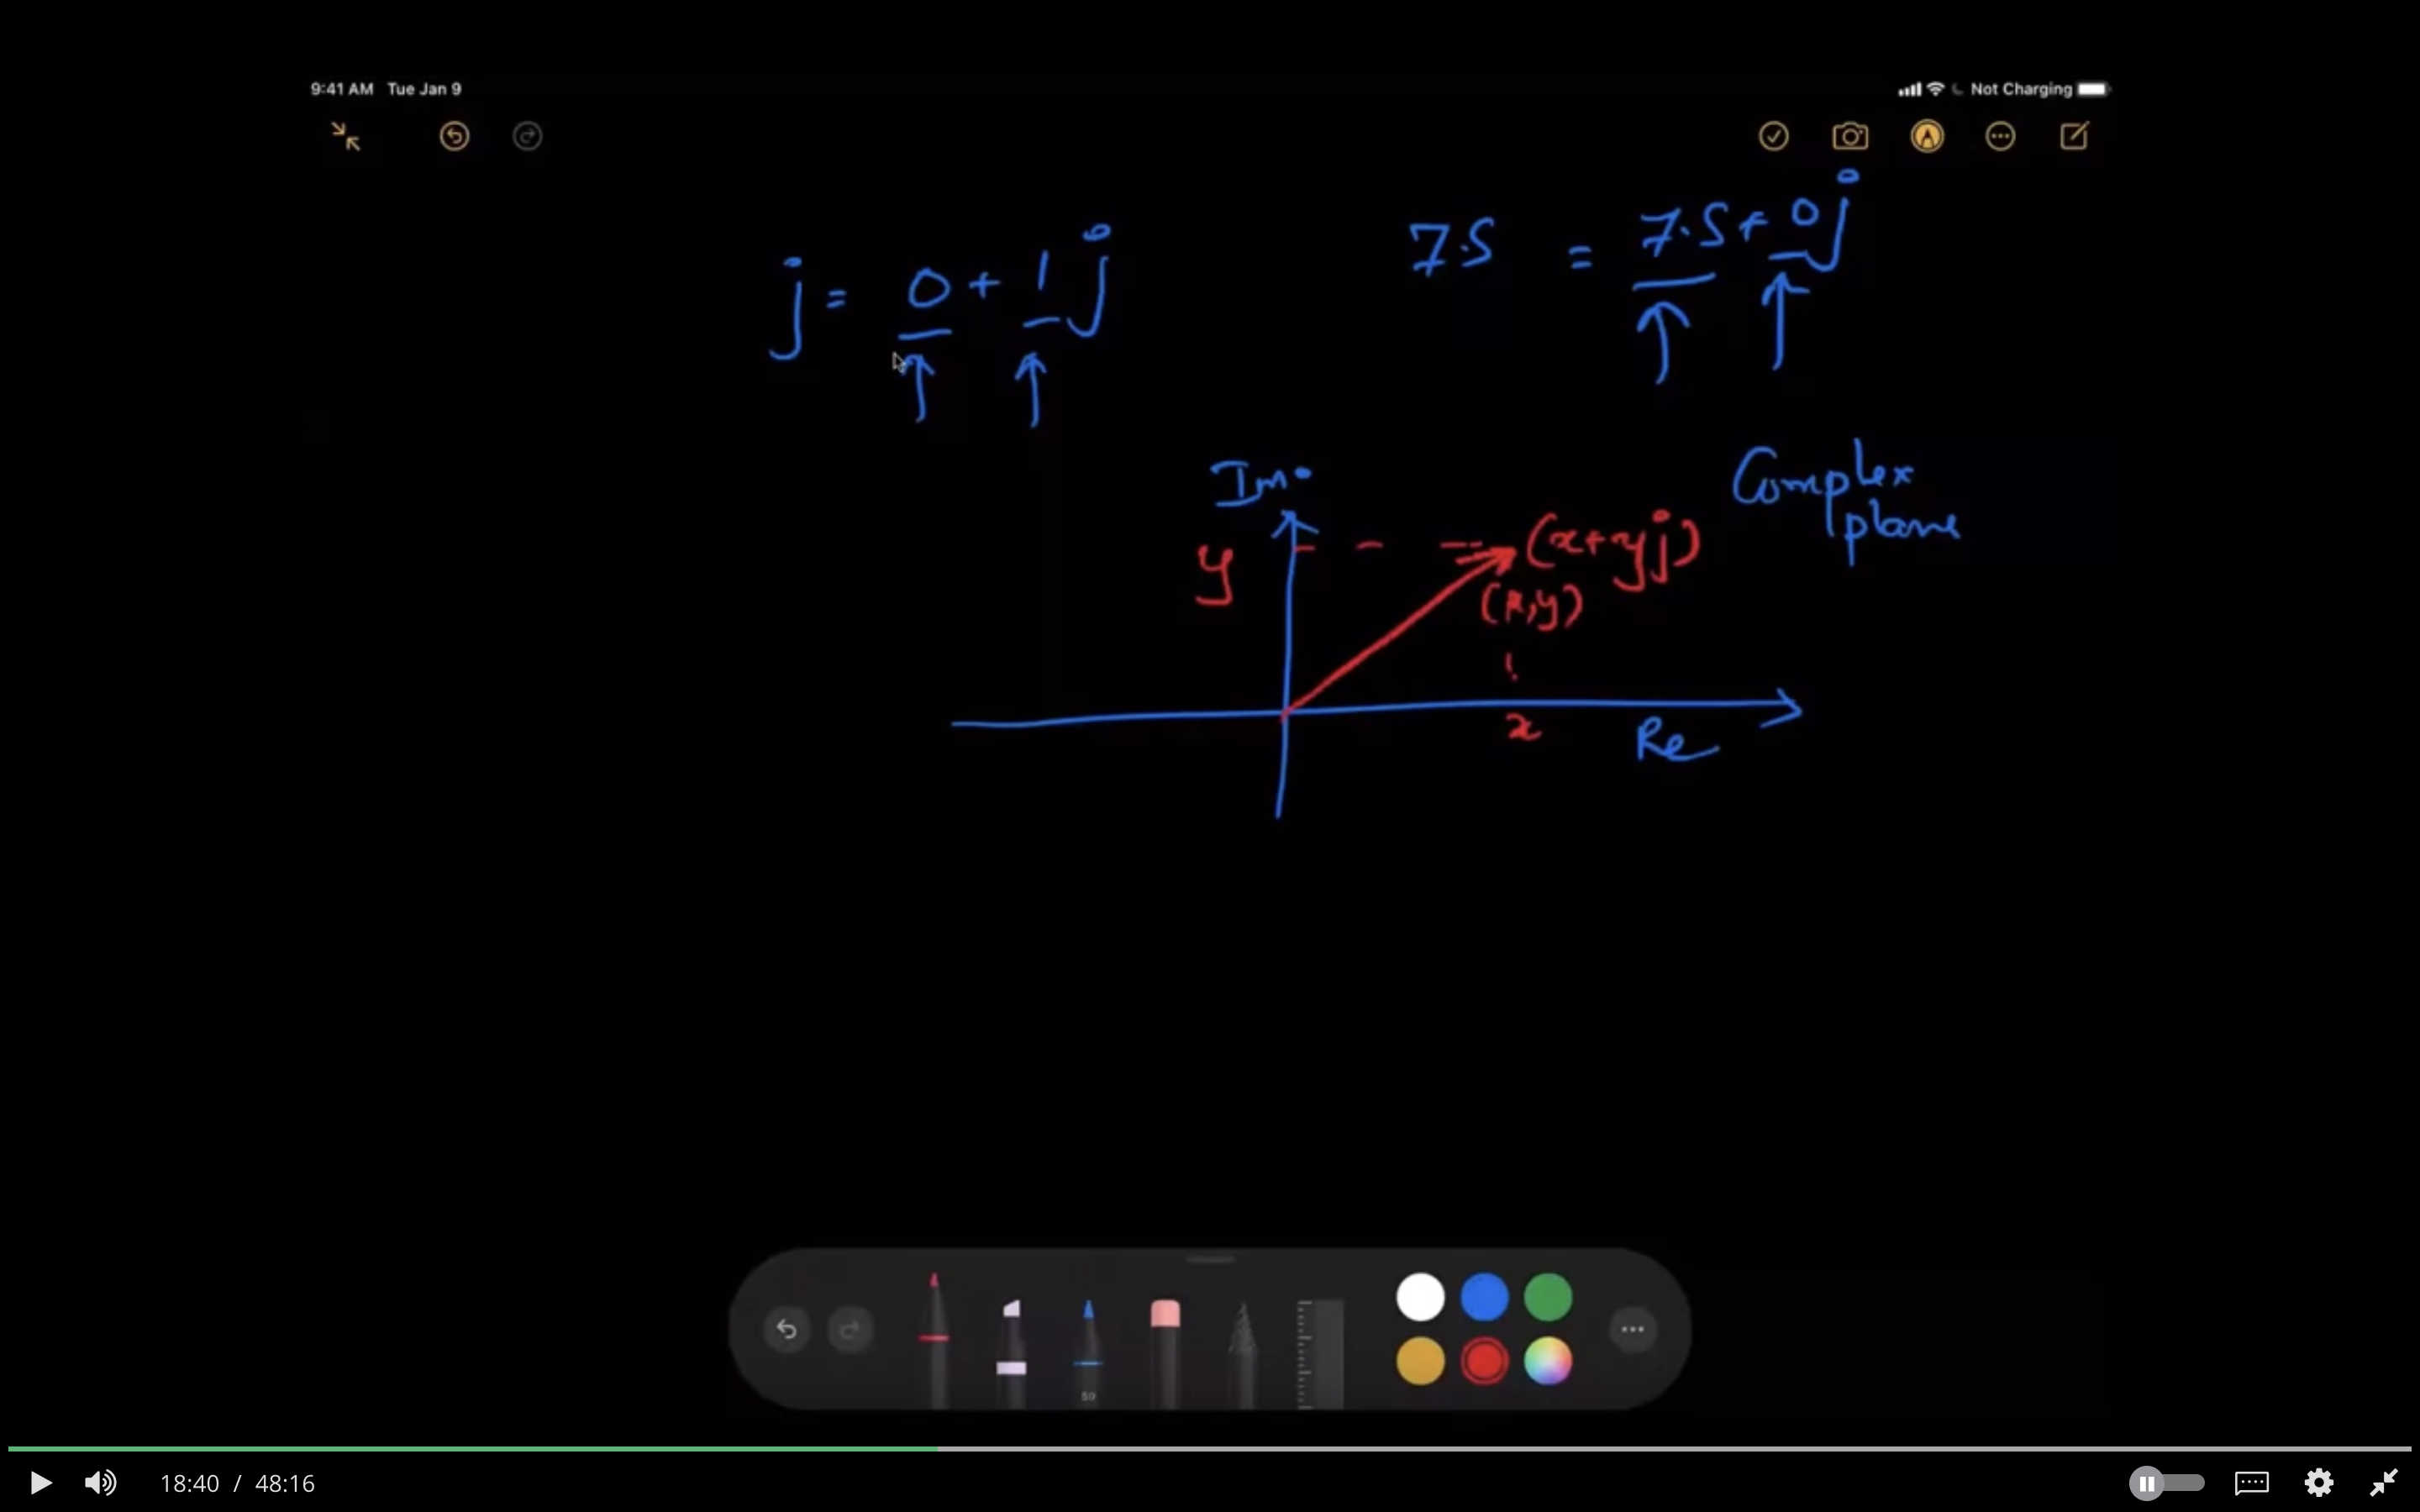 9:41 AM Tue Jan 9
Not Charging
j = 0 + 1j
7.5 = 7.5 + 0j
Im.
Complex
plane
y
(x+yj)
(x,y)
x
Re
50
18:40 / 48:16